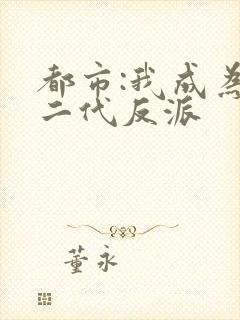 都市:我成為
二代反派
董永